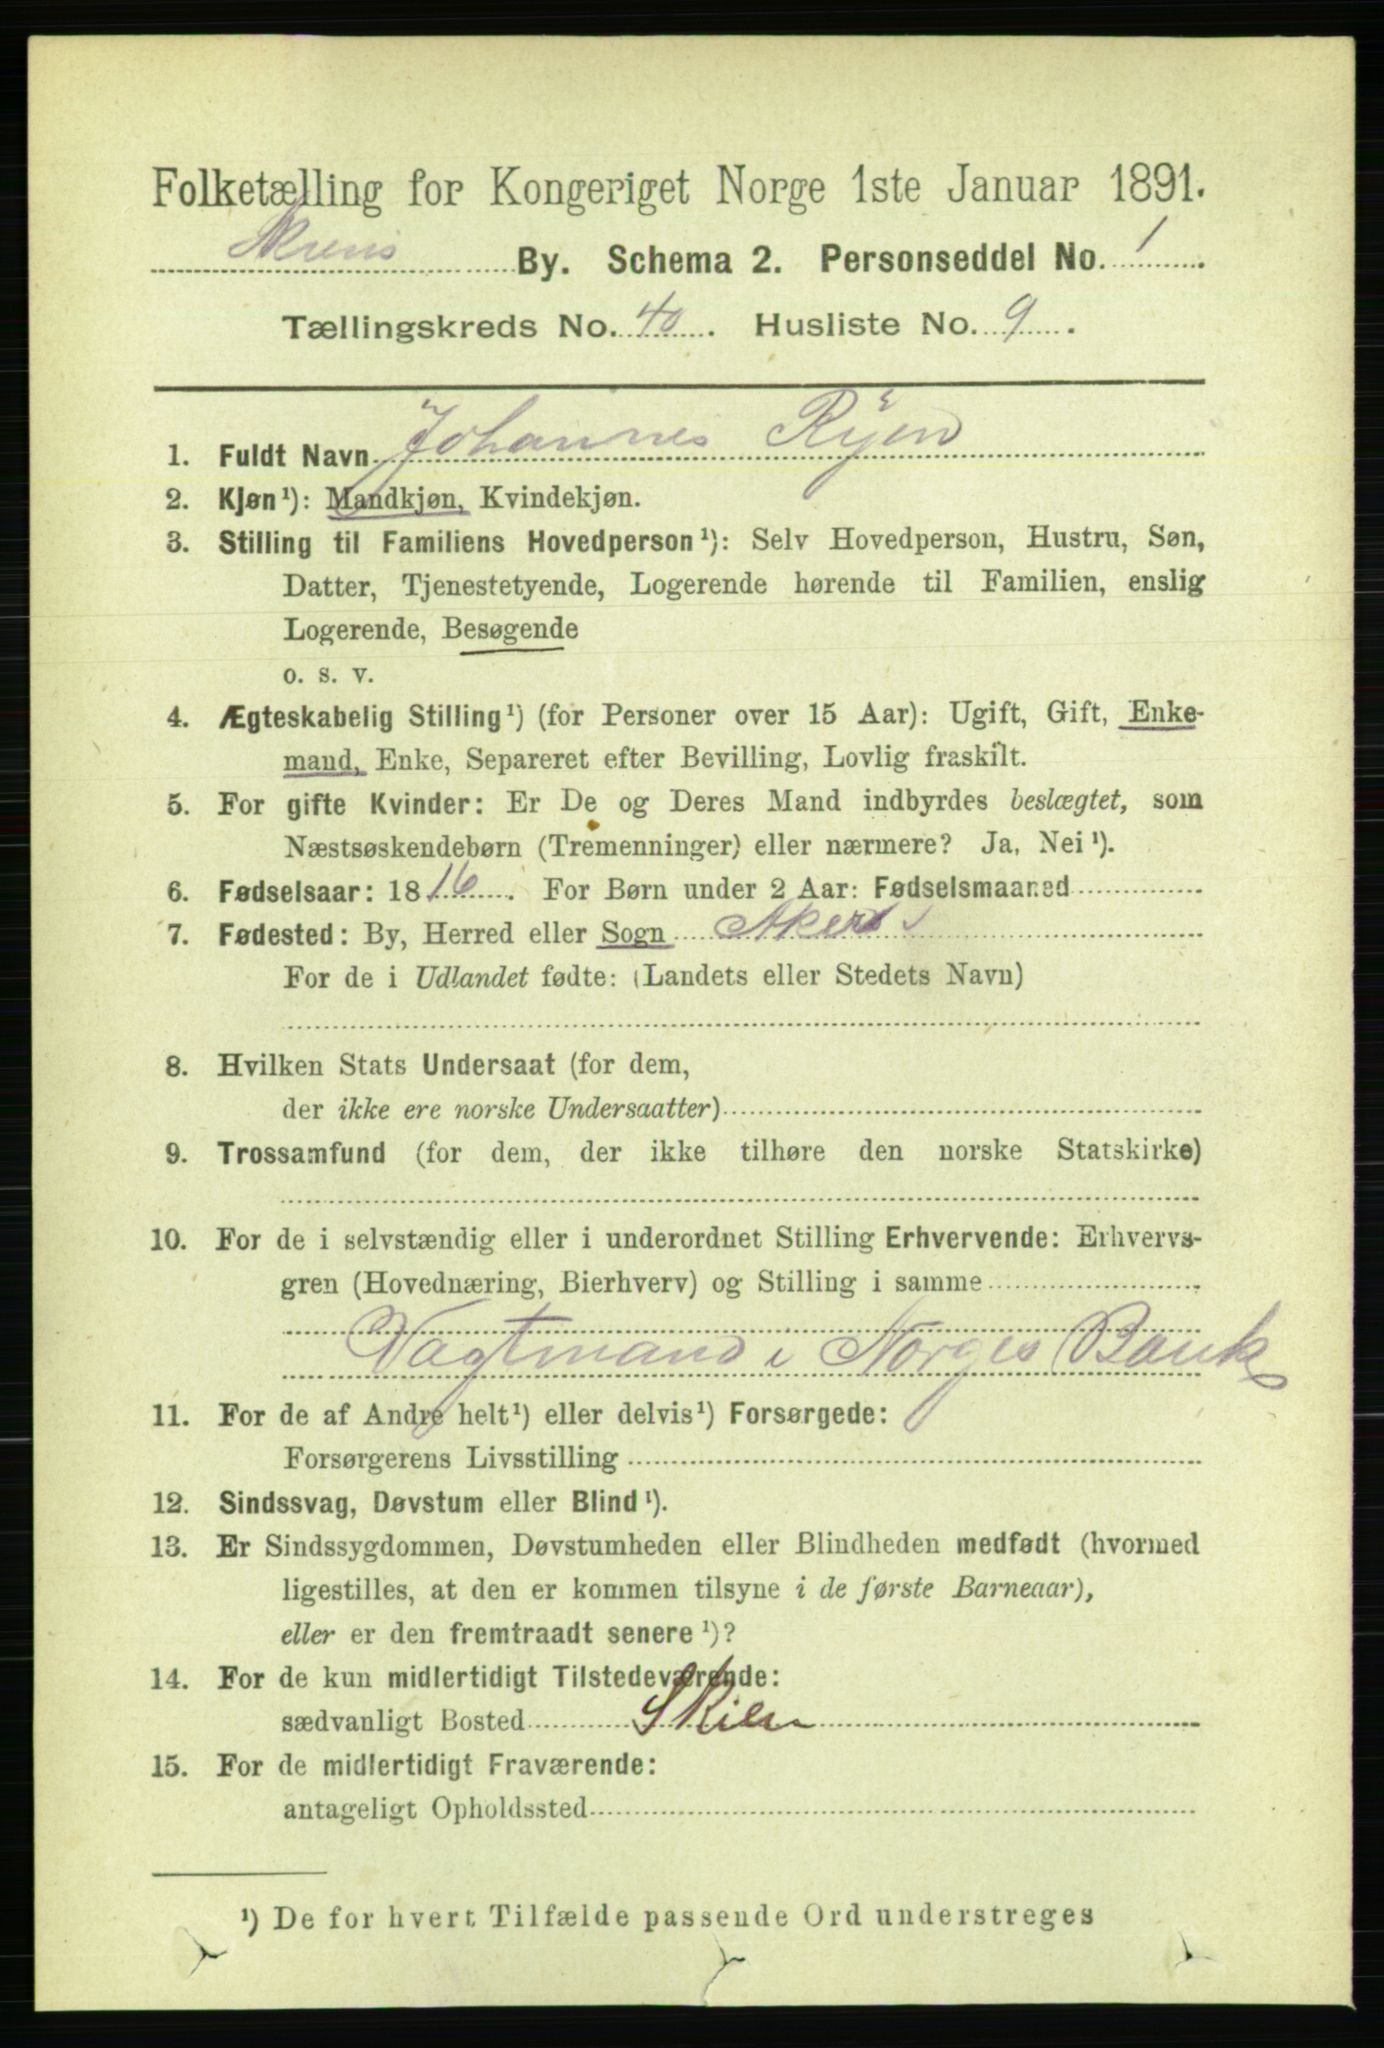 Folketælling for Kongeriget Norge 1ste Januar 1891.
Skiens By. Schema 2. Personseddel No. 1
Tællingskreds No. 40. Husliste No. 9.
1. Fuldt Navn Johannes Ryen
2. Kjøn¹): Mandkjøn, Kvindekjøn.
3. Stilling til Familiens Hovedperson¹): Selv Hovedperson, Hustru, Søn,
Datter, Tjenestetyende, Logerende hørende til Familien, enslig
Logerende, Besøgende
o. s. v.
4. Ægteskabelig Stilling¹) (for Personer over 15 Aar): Ugift, Gift, Enke-
mand, Enke, Separeret efter Bevilling, Lovlig fraskilt.
5. For gifte Kvinder: Er De og Deres Mand indbyrdes beslægtet, som
Næstsøskendebørn (Tremenninger) eller nærmere? Ja, Nei¹).
6. Fødselsaar: 1816. For Børn under 2 Aar: Fødselsmaaned
7. Fødested: By, Herred eller Sogn Akers
For de i Udlandet fødte: (Landets eller Stedets Navn)
8. Hvilken Stats Undersaat (for dem,
der ikke ere norske Undersaatter)
9. Trossamfund (for dem, der ikke tilhøre den norske Statskirke)
10. For de i selvstændig eller i underordnet Stilling Erhvervende: Erhvervs-
gren (Hovednæring, Bierhverv) og Stilling i samme
Vagtmand i Norges Bank
11. For de af Andre helt¹) eller delvis¹) Forsørgede:
Forsørgerens Livsstilling
12. Sindssvag, Døvstum eller Blind¹).
13. Er Sindssygdommen, Døvstumheden eller Blindheden medfødt (hvormed
ligestilles, at den er kommen tilsyne i de første Barneaar),
eller er den fremtraadt senere¹)?
14. For de kun midlertidigt Tilstedeværende:
sædvanligt Bosted Skien
15. For de midlertidigt Fraværende:
antageligt Opholdssted
¹) De for hvert Tilfælde passende Ord understreges